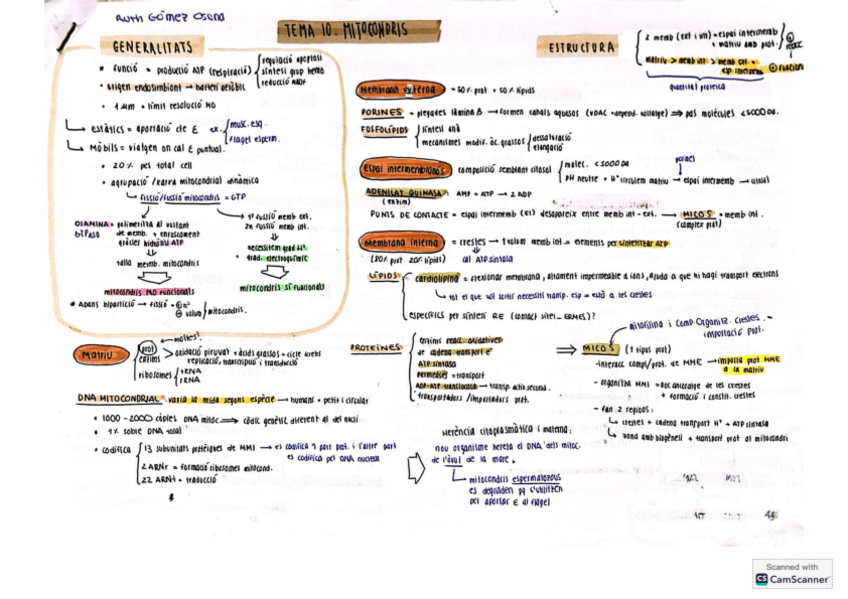 Ruth Gómez Osuna
TEMA 10. MITOCONDRIS
GENERALITATS
• funció = producció ATP (respiració)
regulació apoptosi
síntesi grup hemo
• origen endosimbiont → bacteri aeròbic
• 1 µm = límit resolució MO
estàtics = aportació de E ex.
musc. esq.
flagel esperm.
Mòbils = viatgen on cal E puntual.
• 20% pes total cell
• agrupació /xarxa mitocondrial dinàmica
fissió/fusió mitocondris = GTP
DIAMINA = polimeritza al voltant
de memb. + enroscament
gràcies hidròlisi ATP
talla memb. mitocondris
mitocondris NO funcionals
1r fusió memb ext.
2n fusió memb int.
necessitem grad H⁺
+ grad. electroquímic
mitocondris SÍ funcionals
• Abans bipartició → fissió =
⊕ nº
⊕ volum
mitocondris.
ESTRUCTURA
2 memb (ext i int) = espai intermemb
+ matriu amb prot.
matriu > memb int > memb ext =
esp. intermemb ⊕ funcions
quantitat proteica
Membrana externa = 50% prot + 50% lípids
PORINES = plegades làmina β → formen canals aquosos (VDAC = depend. voltatge) ⟹ pas molècules <5000 Da.
FOSFOLÍPIDS
síntesi
mecanismes modif. àc. grassos
dessaturació
elongació
Espai intermembranós composició semblant citosol
molec. <5000 Da
pH neutre = H⁺ circulem matriu → espai intermemb → citosol
porines
ADENILAT QUINASA: AMP + ATP → 2 ADP
(enzim)
PUNTS DE CONTACTE = espai intermemb (EI) desapareix entre memb int - ext. → MICOS = memb int.
(complex prot)
Membrana interna = crestes → ↑ volum memb int = elements per sintetitzar ATP
(80% prot 20% lípids)
cal ATP sintasa
LÍPIDS
cardiolipina = flexionar membrana, altament impermeable a ions, ajuda a que hi hagi transport electrons
tot el que vol sortir necessiti transp. esp = està a les crestes
específics per síntesi RE (contact sites - ERMES)?
Matriu
moltes!
prot
enzims
oxidació piruvat + àcids grassos = cicle krebs
replicació, transcripció i traducció
ribosomes
tRNA
rRNA
DNA MITOCONDRIAL: varia la mida segons espècie → humans = petit i circular
• 1000 - 2000 còpies DNA mitoc ⟹ codi genètic diferent al del nucli
• 1% sobre DNA total
• codifica
13 subunitats proteïques de MMI → es codifica 1 part prot. i l'altre part
és codifica pel DNA nuclear
2 ARNr = formació ribosomes mitocond.
22 ARNt = traducció
PROTEÏNES
enzims reacc. oxidatives
de cadena transport e⁻
ATP sintasa
Permeases = transport
ADP-ATP translocasa → transp. actiu second.
transportadors /importadors prot.
mitofilina i Comp. Organitz. Crestes. =
importació prot.
⟹ MICOS (1 tipus prot)
- interacc compl/prot. de MME → importa prot MME
a la matriu
- organitza MMI = roc ancoratge de les crestes
+ formació i constit. crestes
- fan 2 regions:
crestes + cadena transport H⁺ + ATP sintasa
zona amb biogènesi + transport prot al mitocondri
Herència citoplasmàtica i materna:
nou organisme hereta el DNA dels mitoc.
de l'òvul de la mare.
mitocondris espermatozous
es degraden pq s'utilitzen
per aportar E al flagel
Scanned with
CS CamScanner